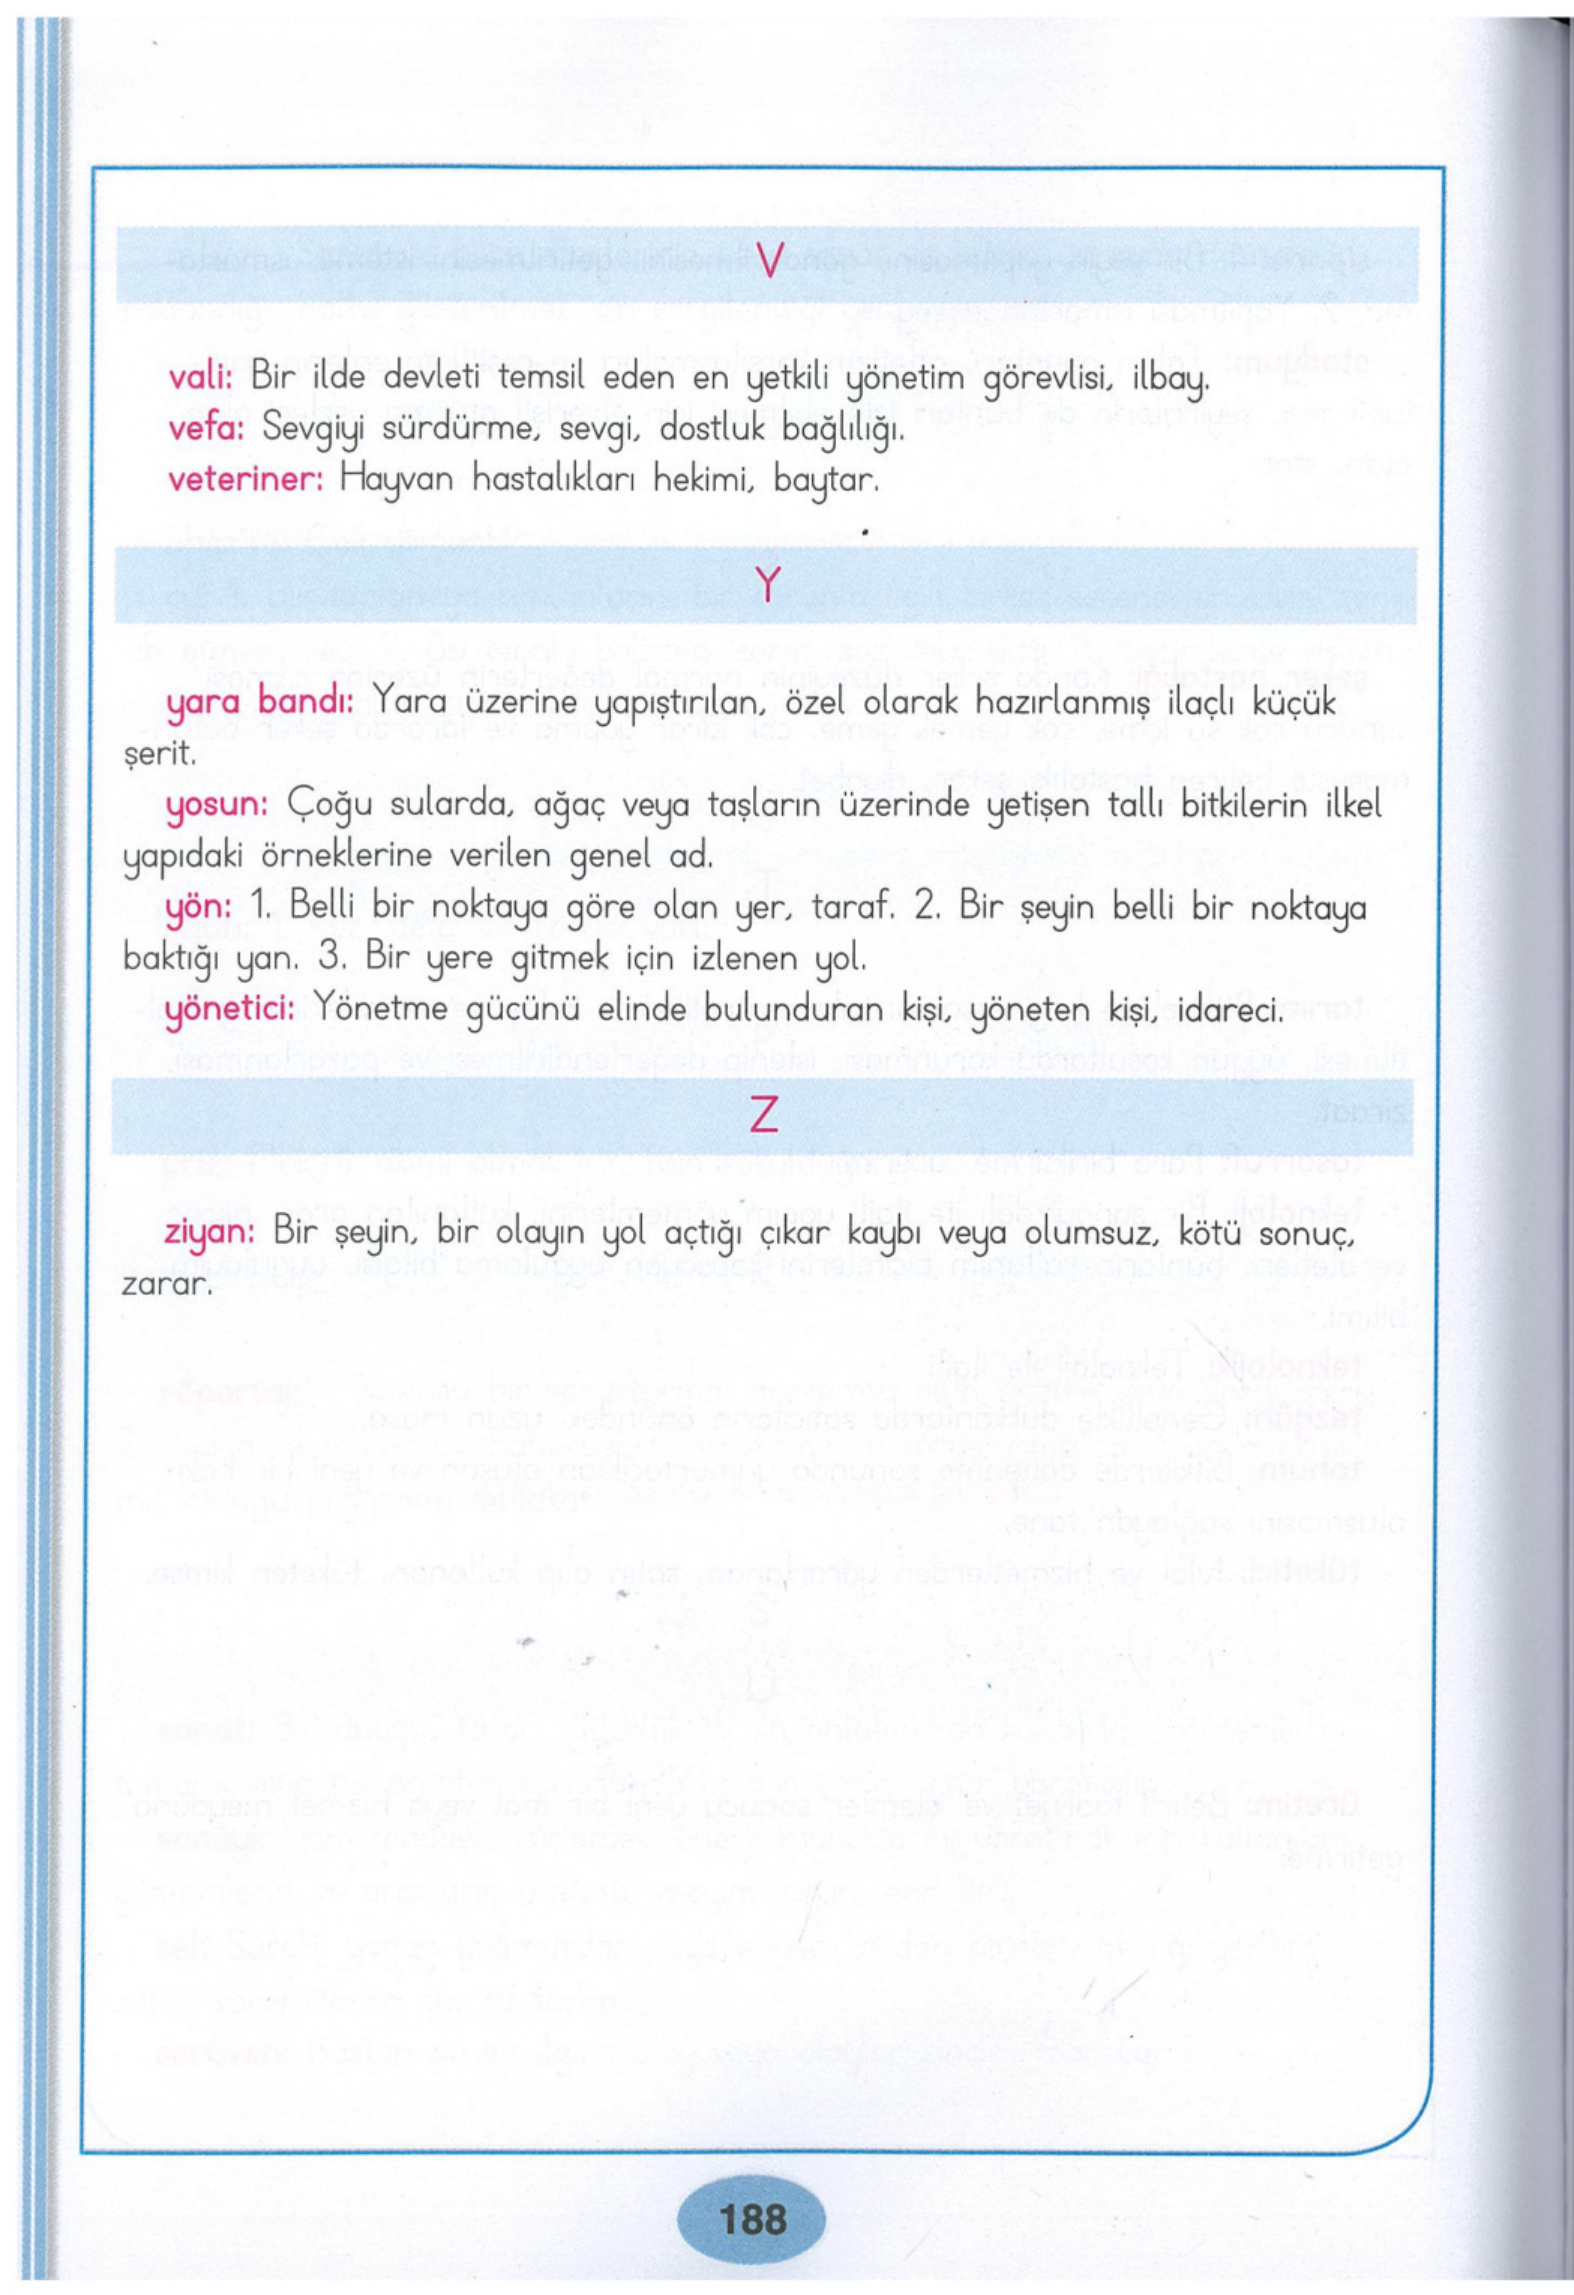 V
vali: Bir ilde devleti temsil eden en yetkili yönetim görevlisi, ilbay.
vefa: Sevgiyi sürdürme, sevgi, dostluk bağlılığı.
veteriner: Hayvan hastalıkları hekimi, baytar.
Y
yara bandı: Yara üzerine yapıştırılan, özel olarak hazırlanmış ilaçlı küçük
şerit.
yosun: Çoğu sularda, ağaç veya taşların üzerinde yetişen tallı bitkilerin ilkel
yapıdaki örneklerine verilen genel ad.
yön: 1. Belli bir noktaya göre olan yer, taraf. 2. Bir şeyin belli bir noktaya
baktığı yan. 3. Bir yere gitmek için izlenen yol.
yönetici: Yönetme gücünü elinde bulunduran kişi, yöneten kişi, idareci.
Z
ziyan: Bir şeyin, bir olayın yol açtığı çıkar kaybı veya olumsuz, kötü sonuç,
zarar.
188